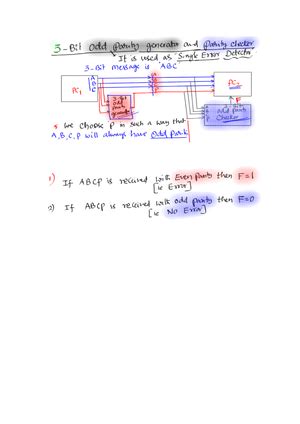 3-Bit odd parity generator and parity checker
It is used as "Single Error Detector"
3-Bit message is "ABC"
A
B
C
PC1
PC2
3-bit odd parity
P
odd parity checker
* We choose P in such a way that
A,B,C,P will always have odd parity
1) If ABCP is received with Even parity then F=1
[is Error]
2) If ABCP is received with odd parity then F=0
[is No Error]